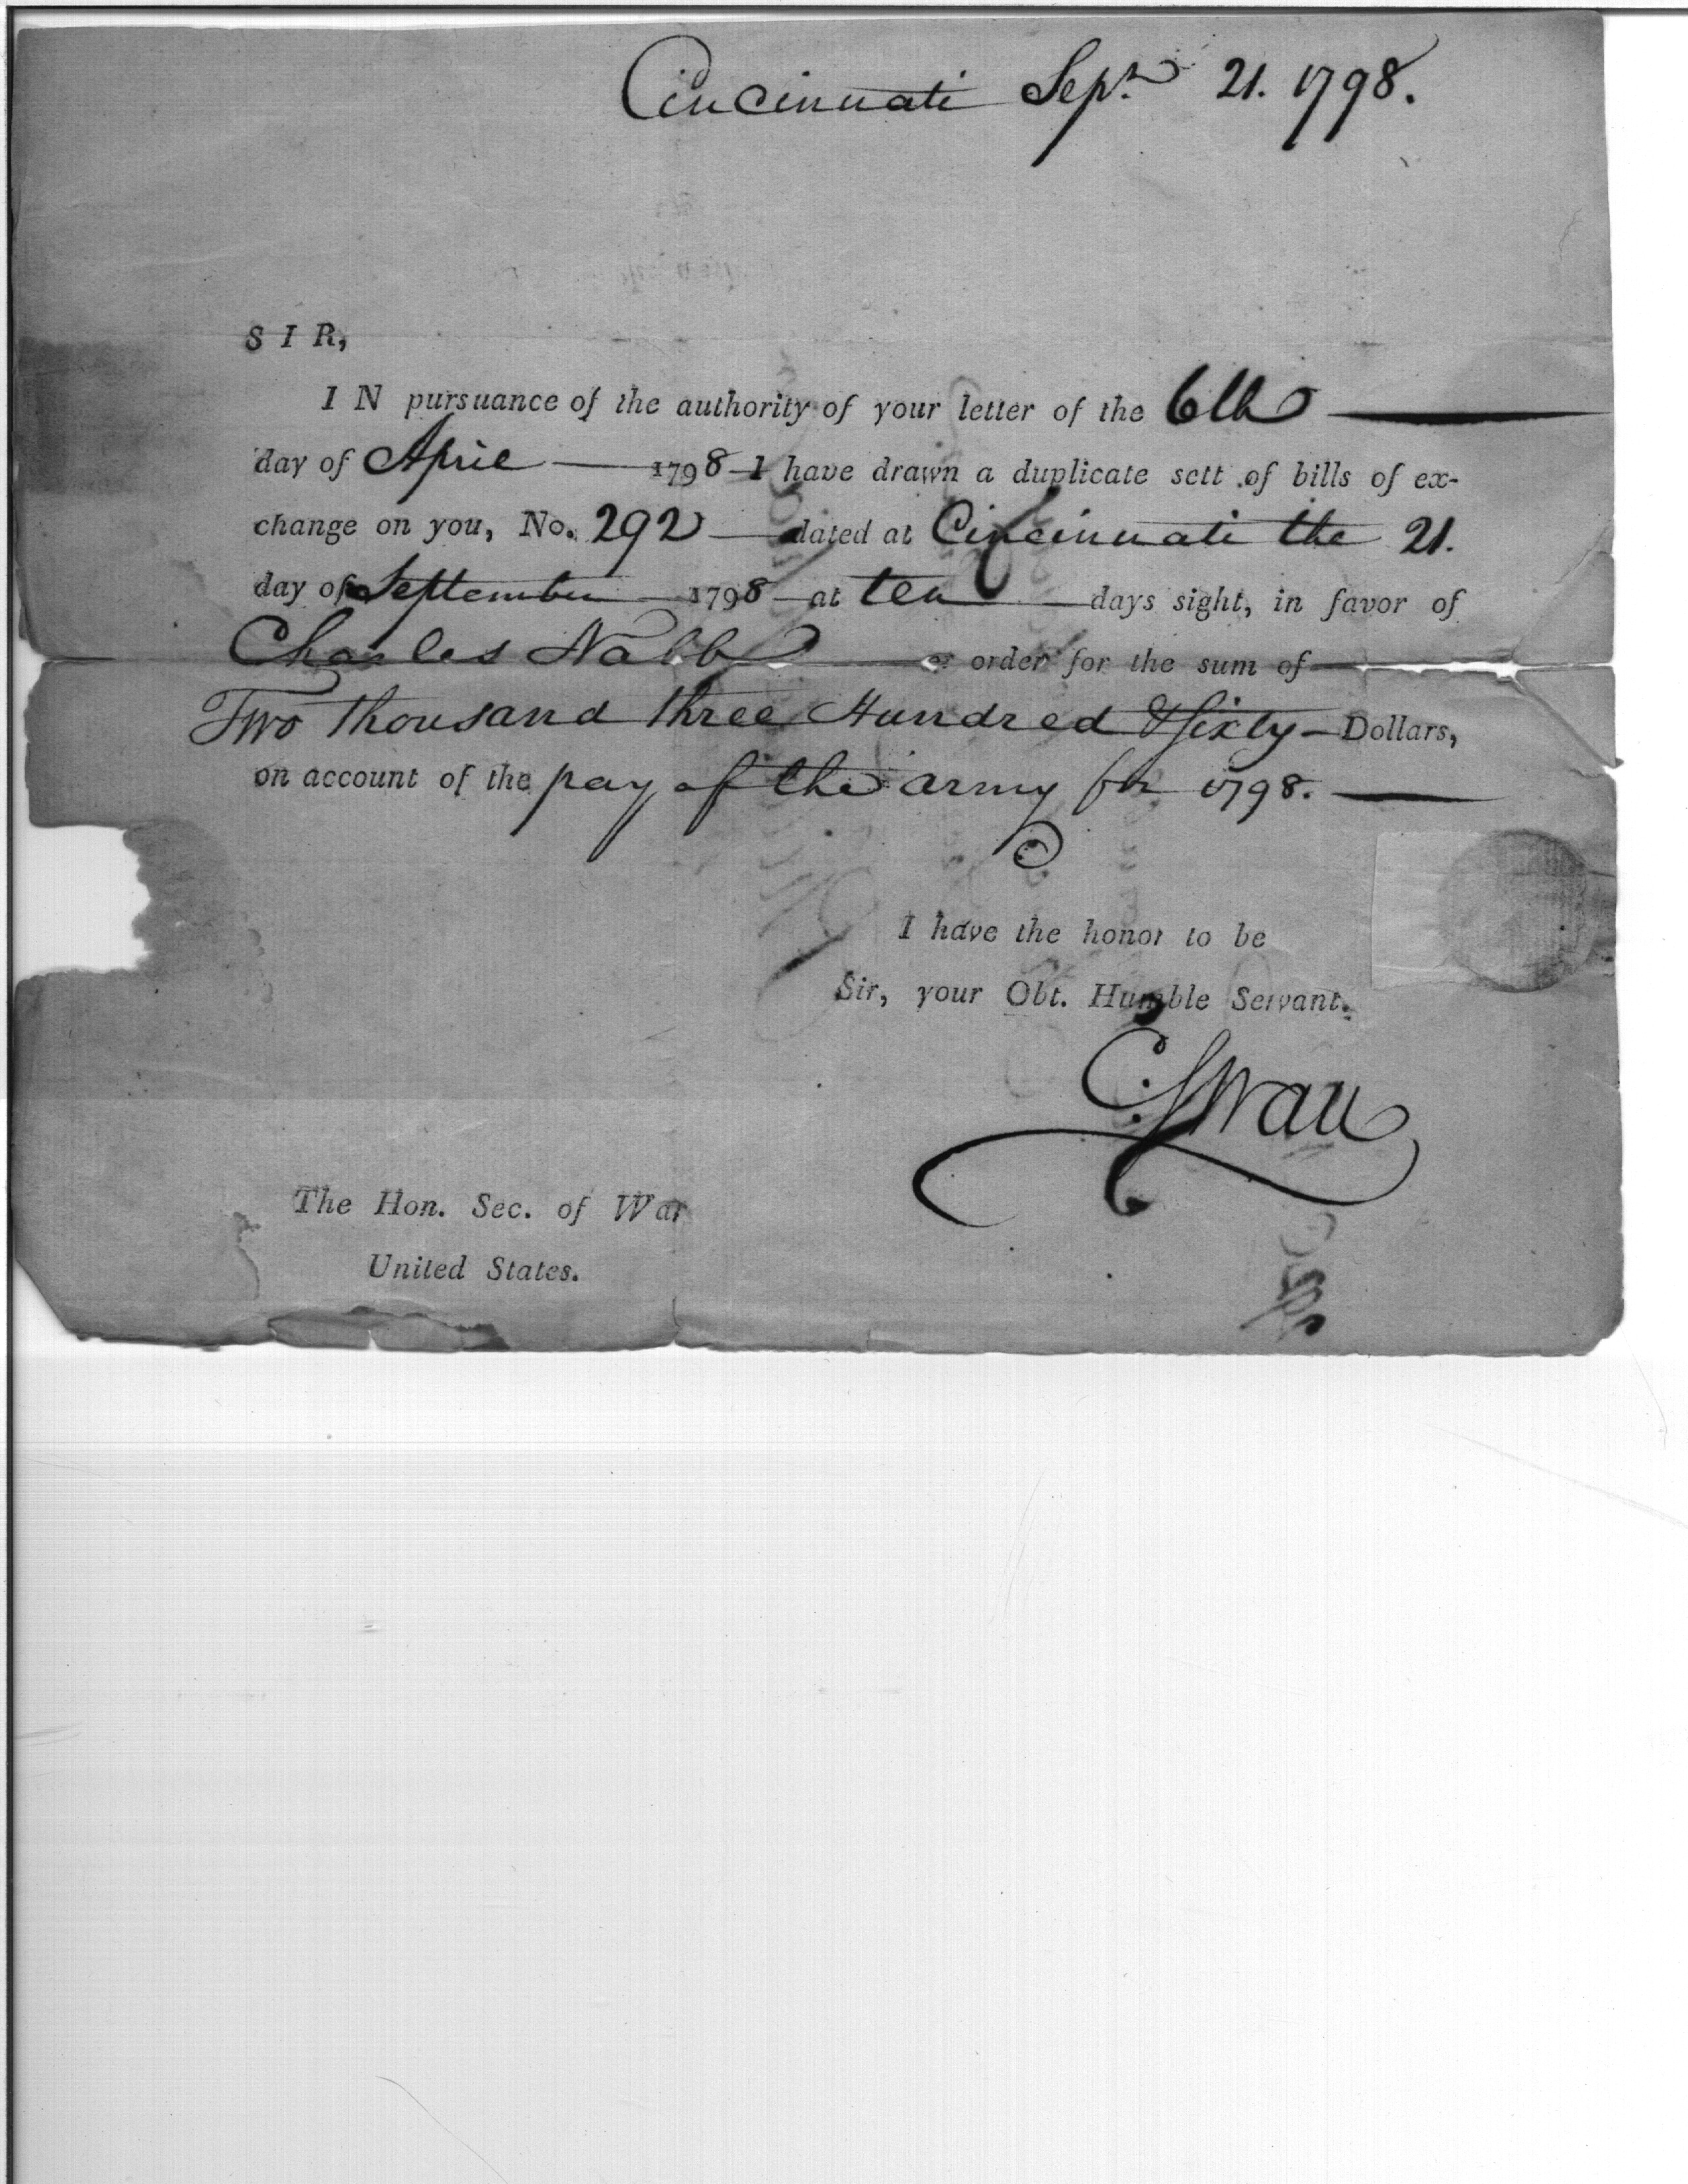 Cincinnati Sepr. 21. 1798.
SIR,
IN pursuance of the authority of your letter of the 6th
day of April 1798 I have drawn a duplicate sett of bills of ex-
change on you, No. 292 dated at Cincinnati the 21.
day of September 1798 at ten days sight, in favor of
Charles Nabb or order for the sum of
Two thousand three Hundred & sixty Dollars,
on account of the pay of the army for 1798.
I have the honor to be
Sir, your Obt. Humble Servant.
C. Swan
The Hon. Sec. of War
United States.